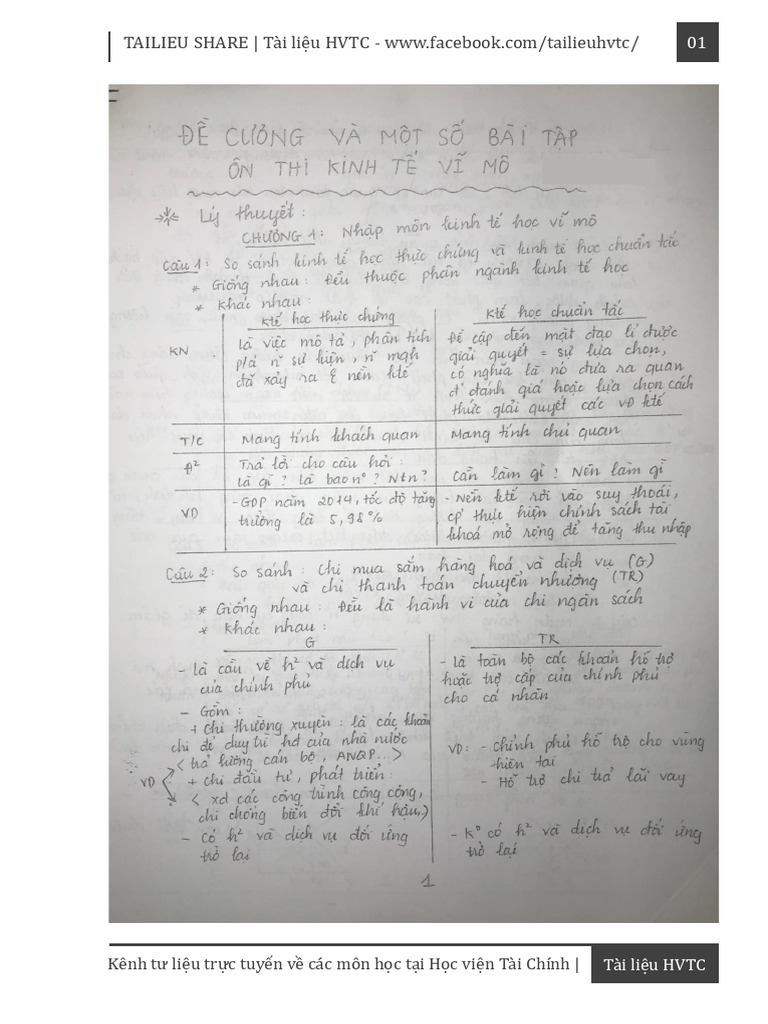 TAILIEU SHARE | Tài liệu HVTC - www.facebook.com/tailieuhvtc/
01
ĐỀ CƯƠNG VÀ MỘT SỐ BÀI TẬP
ÔN THI KINH TẾ VĨ MÔ
Lý thuyết:
CHƯƠNG 1: Nhập môn kinh tế học vĩ mô
Câu 1: So sánh kinh tế học thực chứng và kinh tế học chuẩn tắc
* Giống nhau: Đều thuộc phân ngành kinh tế học
* Khác nhau:
Ktế học thực chứng
Ktế học chuẩn tắc
KN
là việc mô tả, phân tích
n~ sự kiện, n~ mqh
đã xảy ra nền ktế
Đề cập đến mặt đạo lí được
giải quyết = sự lựa chọn,
có nghĩa là nó đưa ra quan
đ' đánh giá hoặc lựa chọn cách
thức giải quyết các vđ ktế
T/C
Mang tính khách quan
Mang tính chủ quan
p²
Trả lời cho câu hỏi:
là gì? là bao nº? Ntn?
Cần làm gì? Nên làm gì
VD
- GDP năm 2014, tốc độ tăng
trưởng là 5,98%
- Nền ktế rơi vào suy thoái,
cp' thực hiện chính sách tài
khoá mở rộng để tăng thu nhập
Câu 2: So sánh: Chi mua sắm hàng hoá và dịch vụ (G)
và chi thanh toán chuyển nhượng (TR)
* Giống nhau: Đều là hành vi của chi ngân sách
* Khác nhau:
G
TR
- là cầu về h² và dịch vụ
của chính phủ
- Gồm:
+ Chi thường xuyên: là các khoản
chi để duy trì hđ của nhà nước
< trả lương cán bộ, ANQP...>
VD
+ Chi đầu tư, phát triển:
< xd các công trình công cộng,
chi chống biến đổi khí hậu,)
- Có h² và dịch vụ đối ứng
trở lại
- là toàn bộ các khoản hỗ trợ
hoặc trợ cấp của chính phủ
cho cá nhân
VD: - Chính phủ hỗ trợ cho vùng
thiên tai
- Hỗ trợ chi trả lãi vay
- Kº có h² và dịch vụ đối ứng
trở lại
1
Kênh tư liệu trực tuyến về các môn học tại Học viện Tài Chính |
Tài liệu HVTC